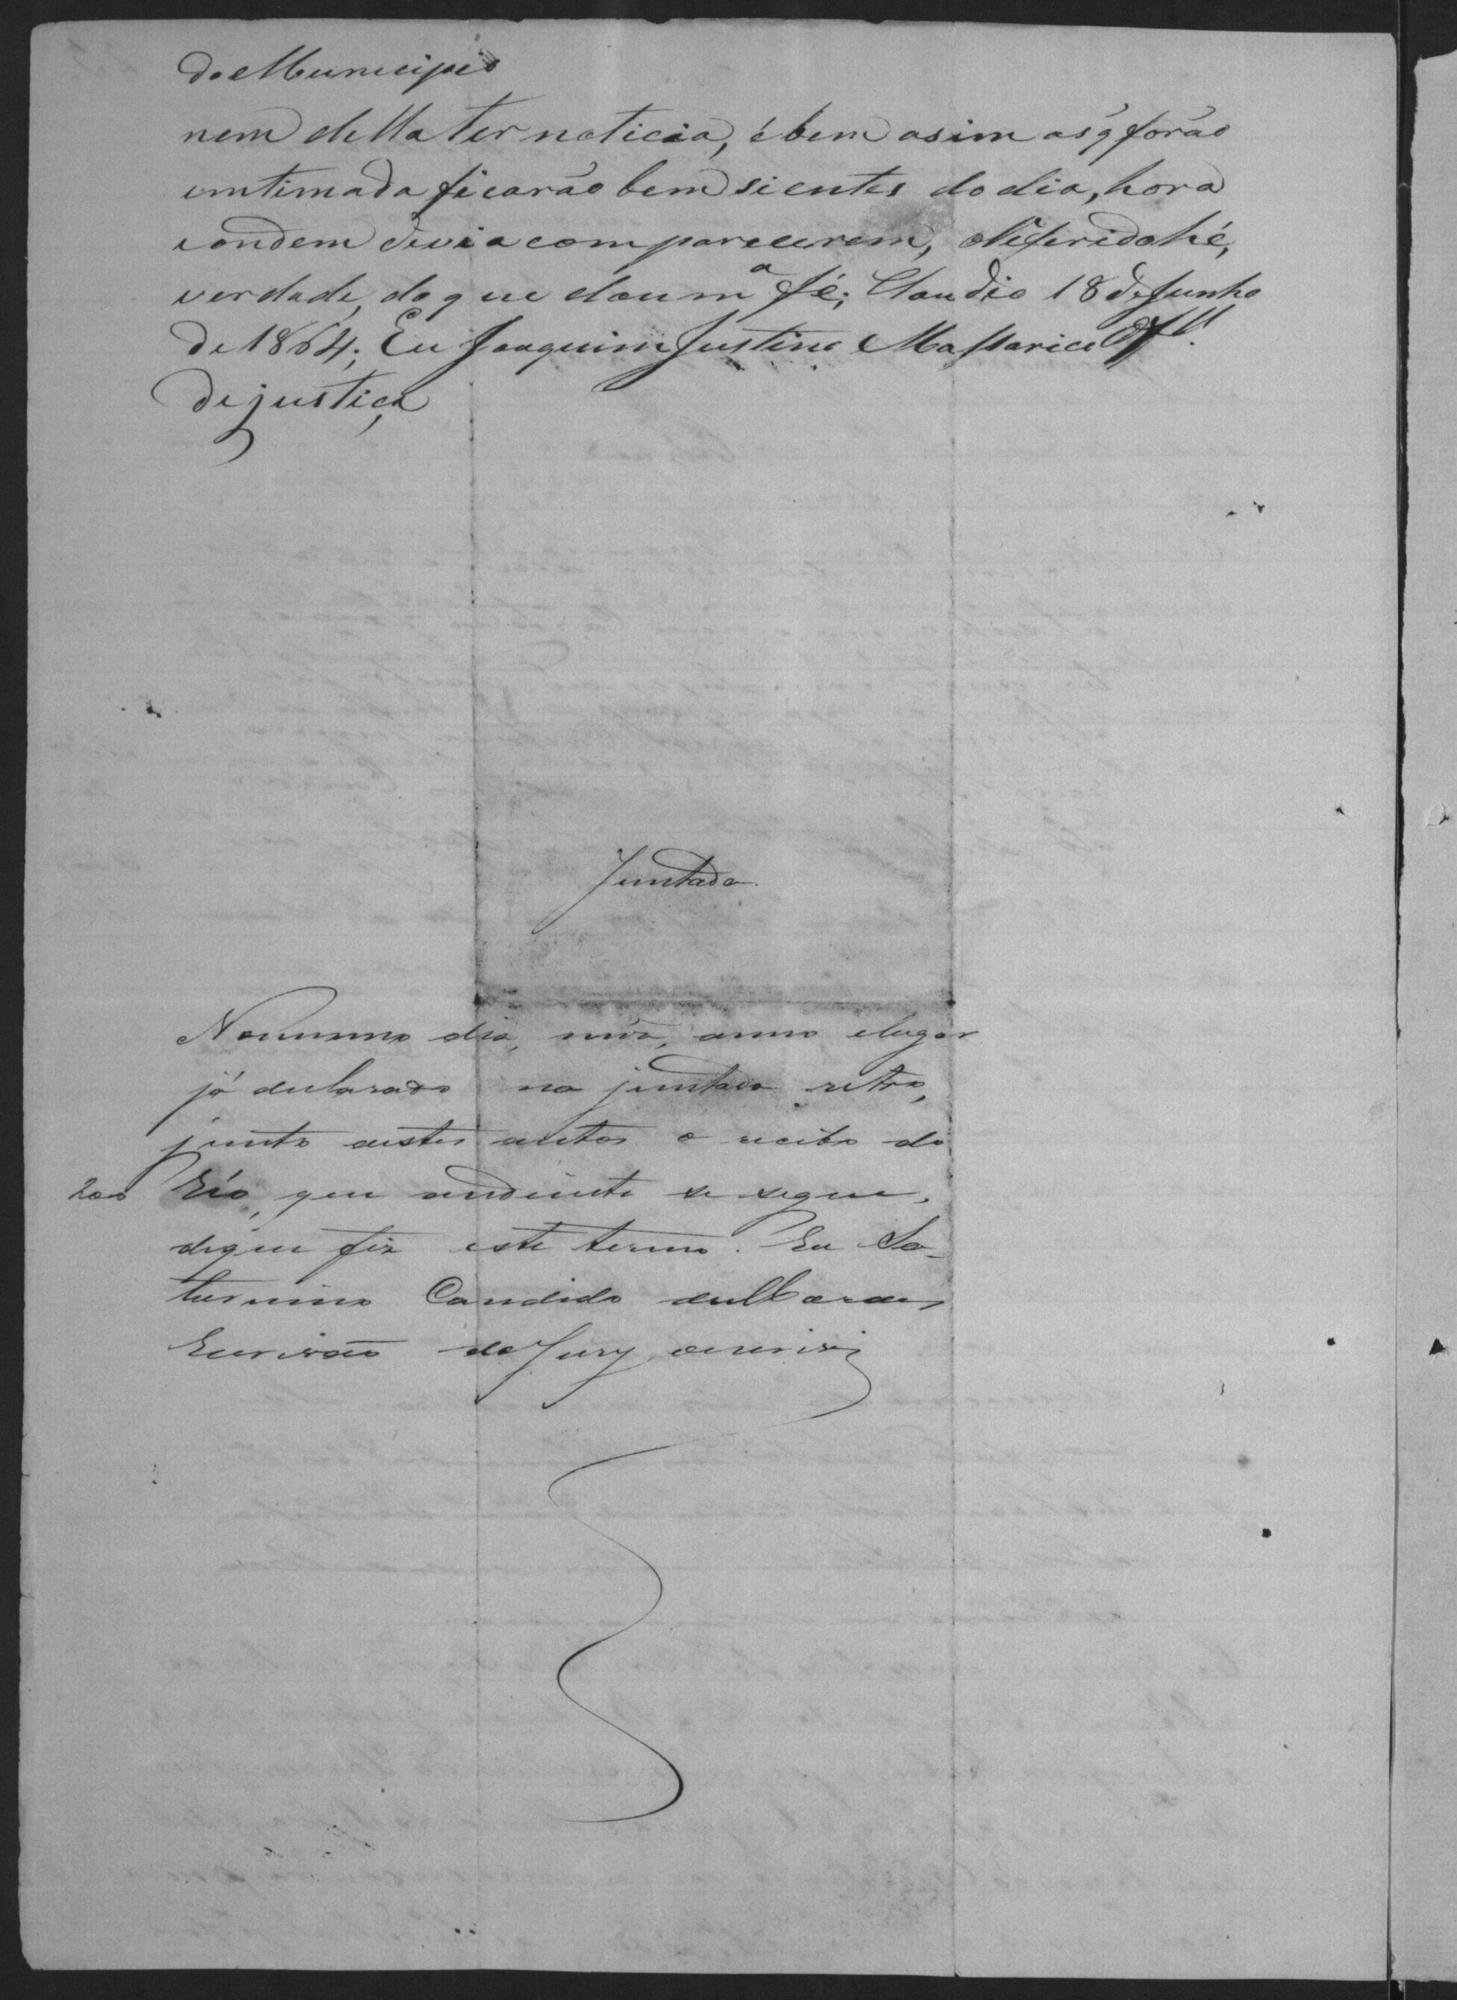 do Municipio
nem della ter noticia, é bem asim as q̃ forão
emtimada ficarão bem sientes do dia, hora
e ondem divia comparecerem, o referido hé,
verdade, do que dou m.ª fé; Claudio 18 de Junho
de 1864; Eu Joaquim Justino Massarico Off.al
de justiça
Juntada
No mesmo dia, mêz, anno e lugar
já declarado na juntada retro,
junto aestes autos o recibo do
200 Réo, que adiente se segue,
deque fiz este termo. Eu Sa-
turnino Candido de Moraes
Escrivão do Jury, o escrivi